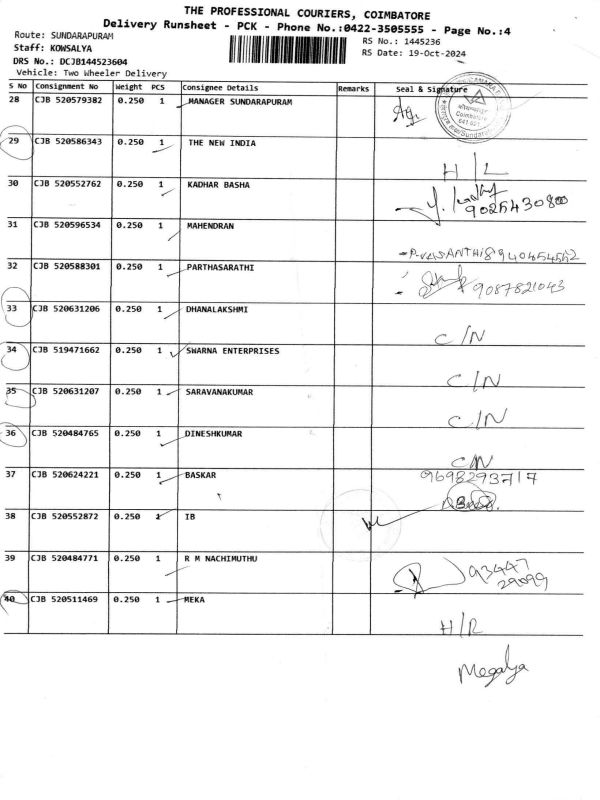 THE PROFESSIONAL COURIERS, COIMBATORE
Delivery Runsheet - PCK - Phone No.:0422-3505555 - Page No.:4
Route: SUNDARAPURAM
RS No.: 1445236
Staff: KOWSALYA
RS Date: 19-Oct-2024
DRS No.: DCJB144523604
Vehicle: Two Wheeler Delivery
S No Consignment No Weight PCS Consignee Details Remarks Seal & Signature
28 CJB 520579382 0.250 1 MANAGER SUNDARAPURAM
Coimbatore
29 CJB 520586343 0.250 1 THE NEW INDIA H/L
30 CJB 520552762 0.250 1 KADHAR BASHA 9025430800
31 CJB 520596534 0.250 1 MAHENDRAN P.VASANTHI 8940454552
32 CJB 520588301 0.250 1 PARTHASARATHI 9087821043
33 CJB 520631206 0.250 1 DHANALAKSHMI C/N
34 CJB 519471662 0.250 1 SWARNA ENTERPRISES C/N
35 CJB 520631207 0.250 1 SARAVANAKUMAR C/N
36 CJB 520484765 0.250 1 DINESHKUMAR C/N
37 CJB 520624221 0.250 1 BASKAR 9698293717
38 CJB 520552872 0.250 1 IB
39 CJB 520484771 0.250 1 R M NACHIMUTHU 93447
29099
40 CJB 520511469 0.250 1 MEKA H/R
Megalya